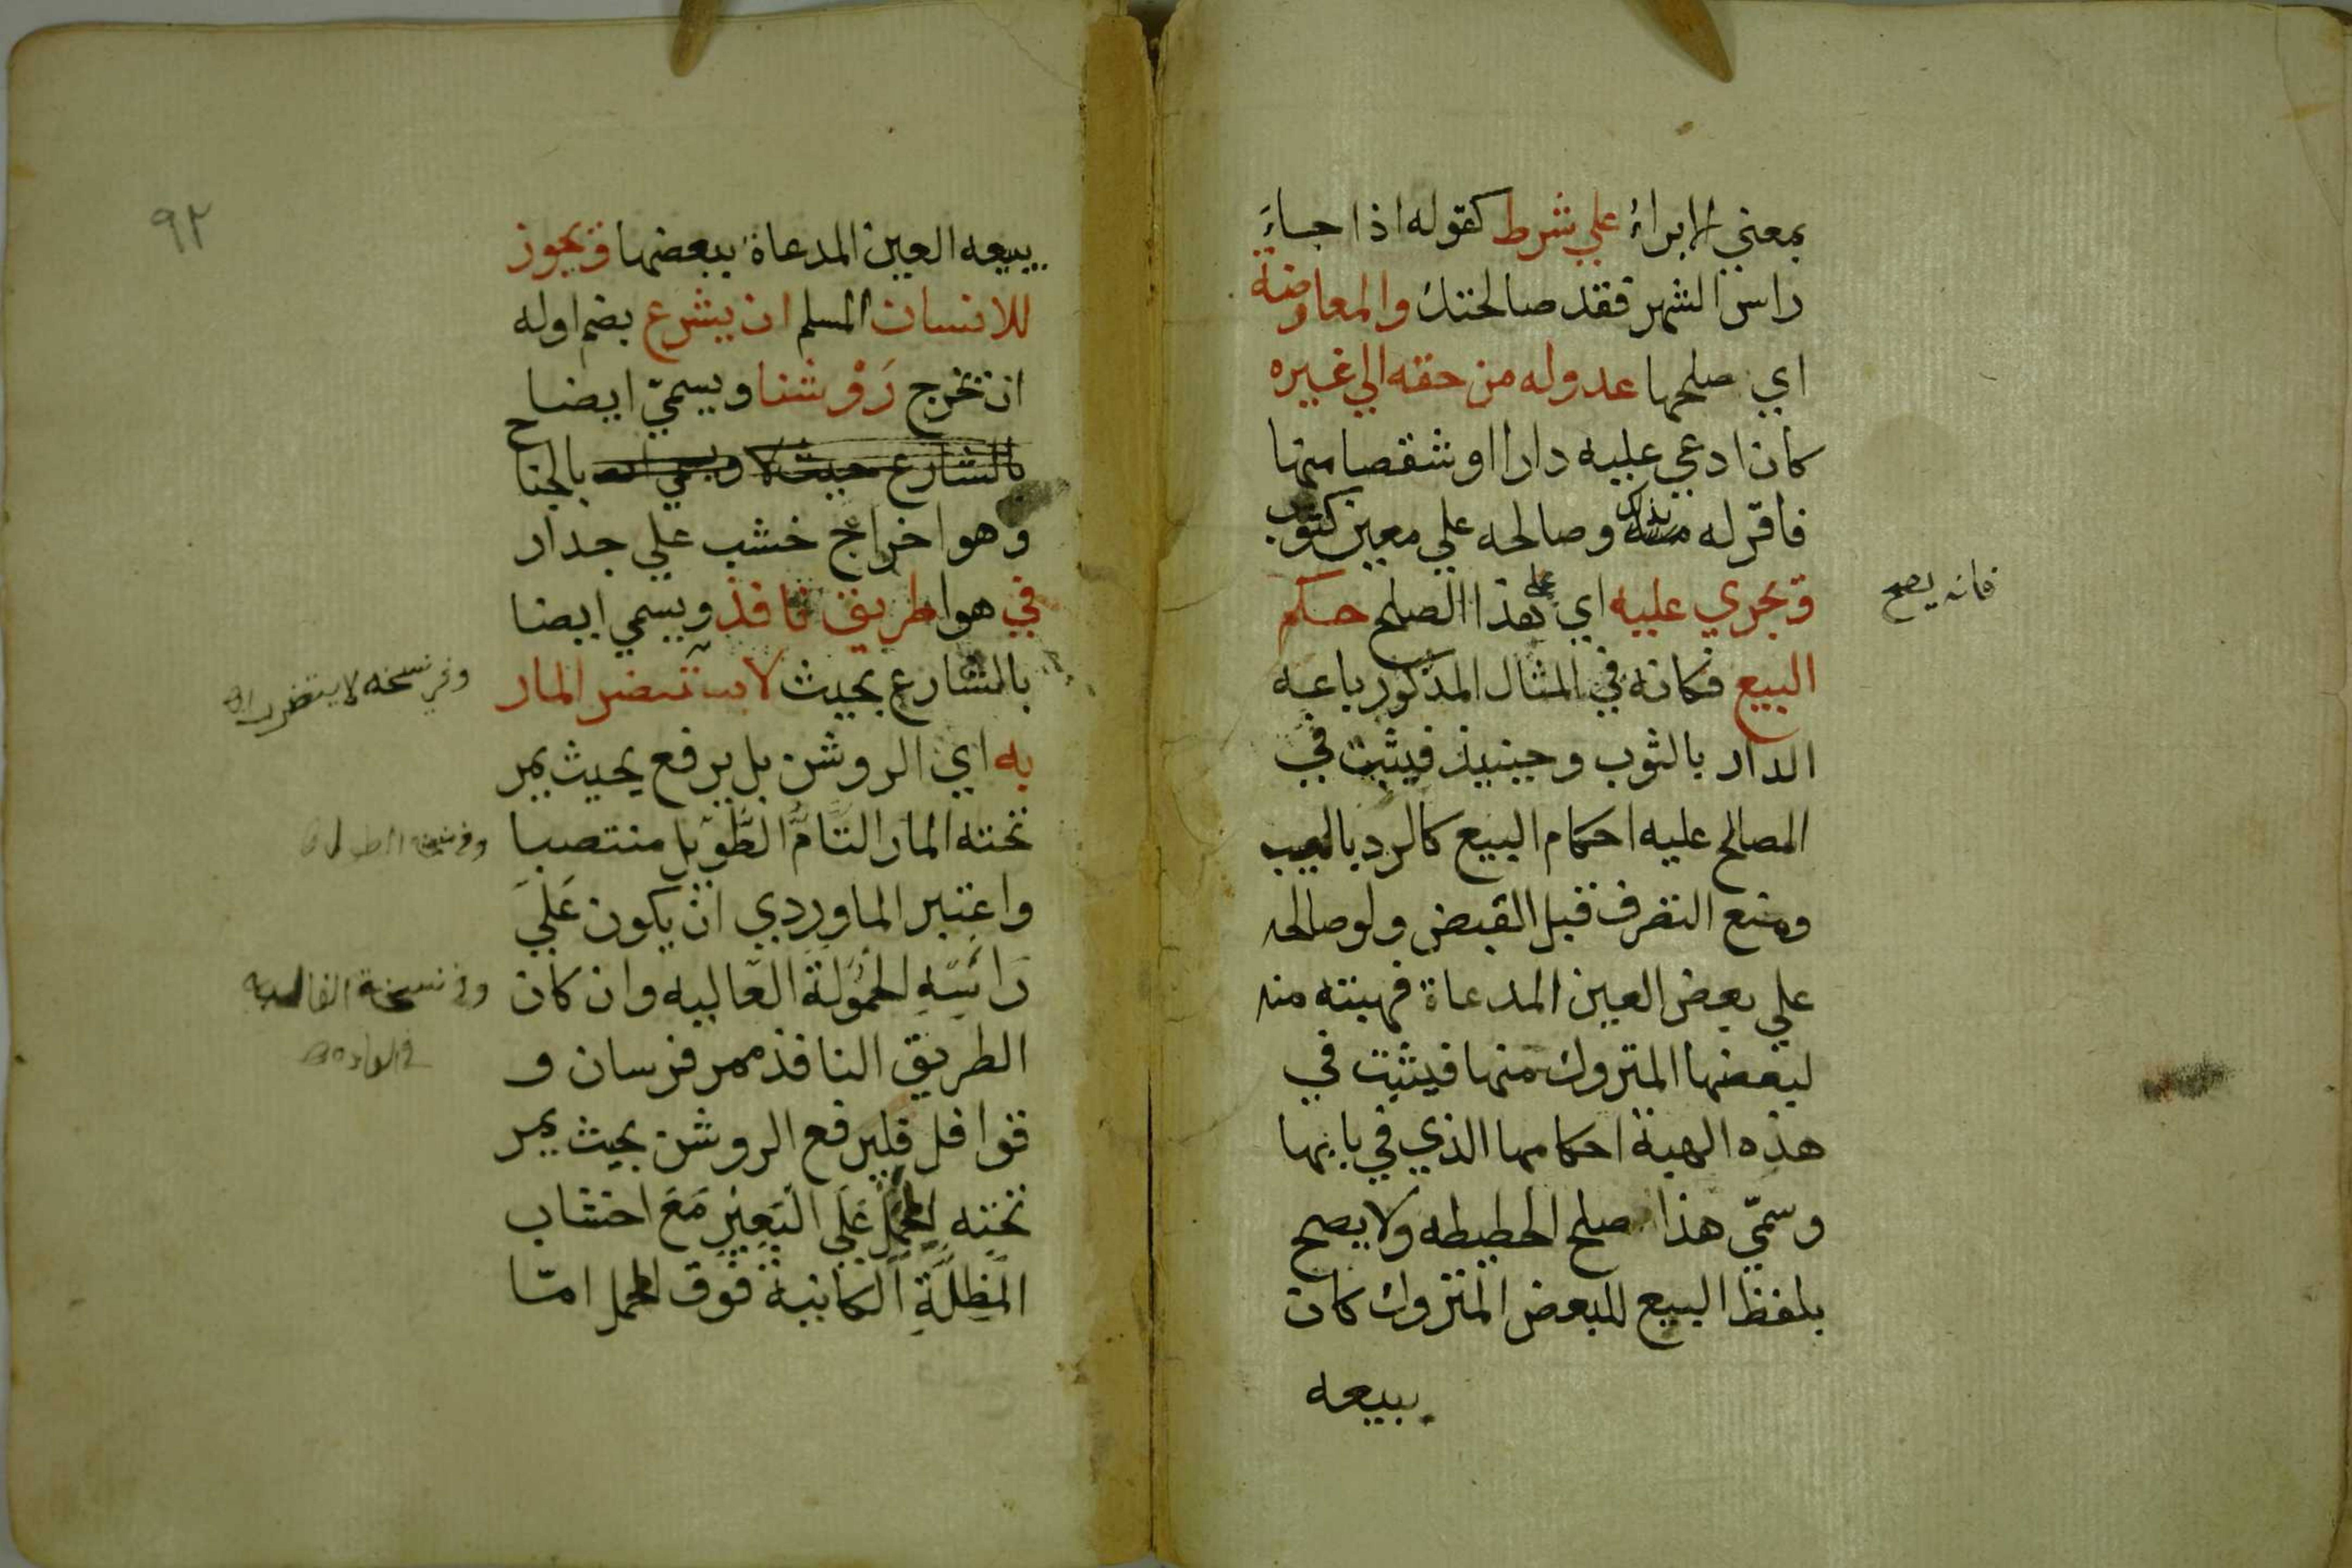 بمعني الابراء علي شرط كقوله اذا جاء
راس الشهر فقد صالحتك والمعاوضة
اي صلحها عدوله من حقه الي غيره
كان ادعي عليه دارا او شقصا منها
فاقر له بذلك وصالحه علي معين كثوب
فانه يصح
ويجري عليه اي علي هذا الصلح حكم
البيع فكانه في المثال المذكور باعه
الدار بالثوب وحينيذ فيثبت في
المصالح عليه احكام البيع كالرد بالعيب
ومنع التصرف قبل القبض ولو صالحه
علي بعض العين المدعاة فهبته منه
لبعضها المتروك منها فيثبت في
هذه الهبة احكامها الذي في بابها
وسمي هذا صلح الحطيطه ولا يصح
بلفظ البيع للبعض المتروك كان
يبيعه
٩٢
يبيعه العين المدعاة ببعضها ويجوز
للانسان المسلم ان يشرع بضم اوله
ان تخرج رَوْشنا ويسمي ايضا
بالشارع حيث لا ويسمي بالجناح
وهو اخراج خشب علي جدار
في هوا طريق نافذ ويسمي ايضا
بالشارع بحيث لا يتضر المار
وفي نسخه لا يتضرر
به اي الروشن بل يرفع بحيث يمر
تحته المار التَّامُّ الطَّويل منتصبا
وفي نسخة
واعتبر الماوردي ان يكون عَلَي
رَائسِهِ الحُمُولَةَ العاليه وان كان
وفي نسخة الغالبه
الطريق النافذ ممر فرسان و
قوافل فليرفع الروشن بحيث يمر
تحته المحمل عَلَي الْبَعِيْرِ مَعَ اخشاب
المِظَلَّةِ الكاينة فوق المحمل امّا